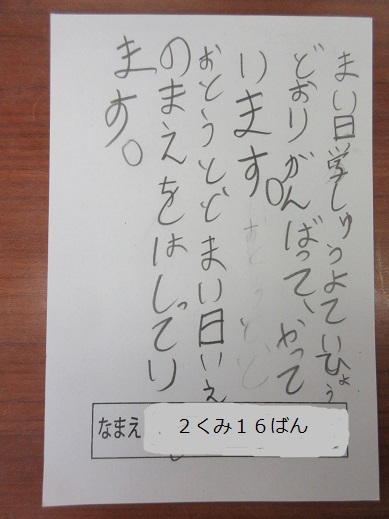 まい日学しゅうよていひょう
どおりがんばって、やって
います。
おとうとどまい日いえ
のまえをはしってい
ます。
なまえ ２くみ１６ばん